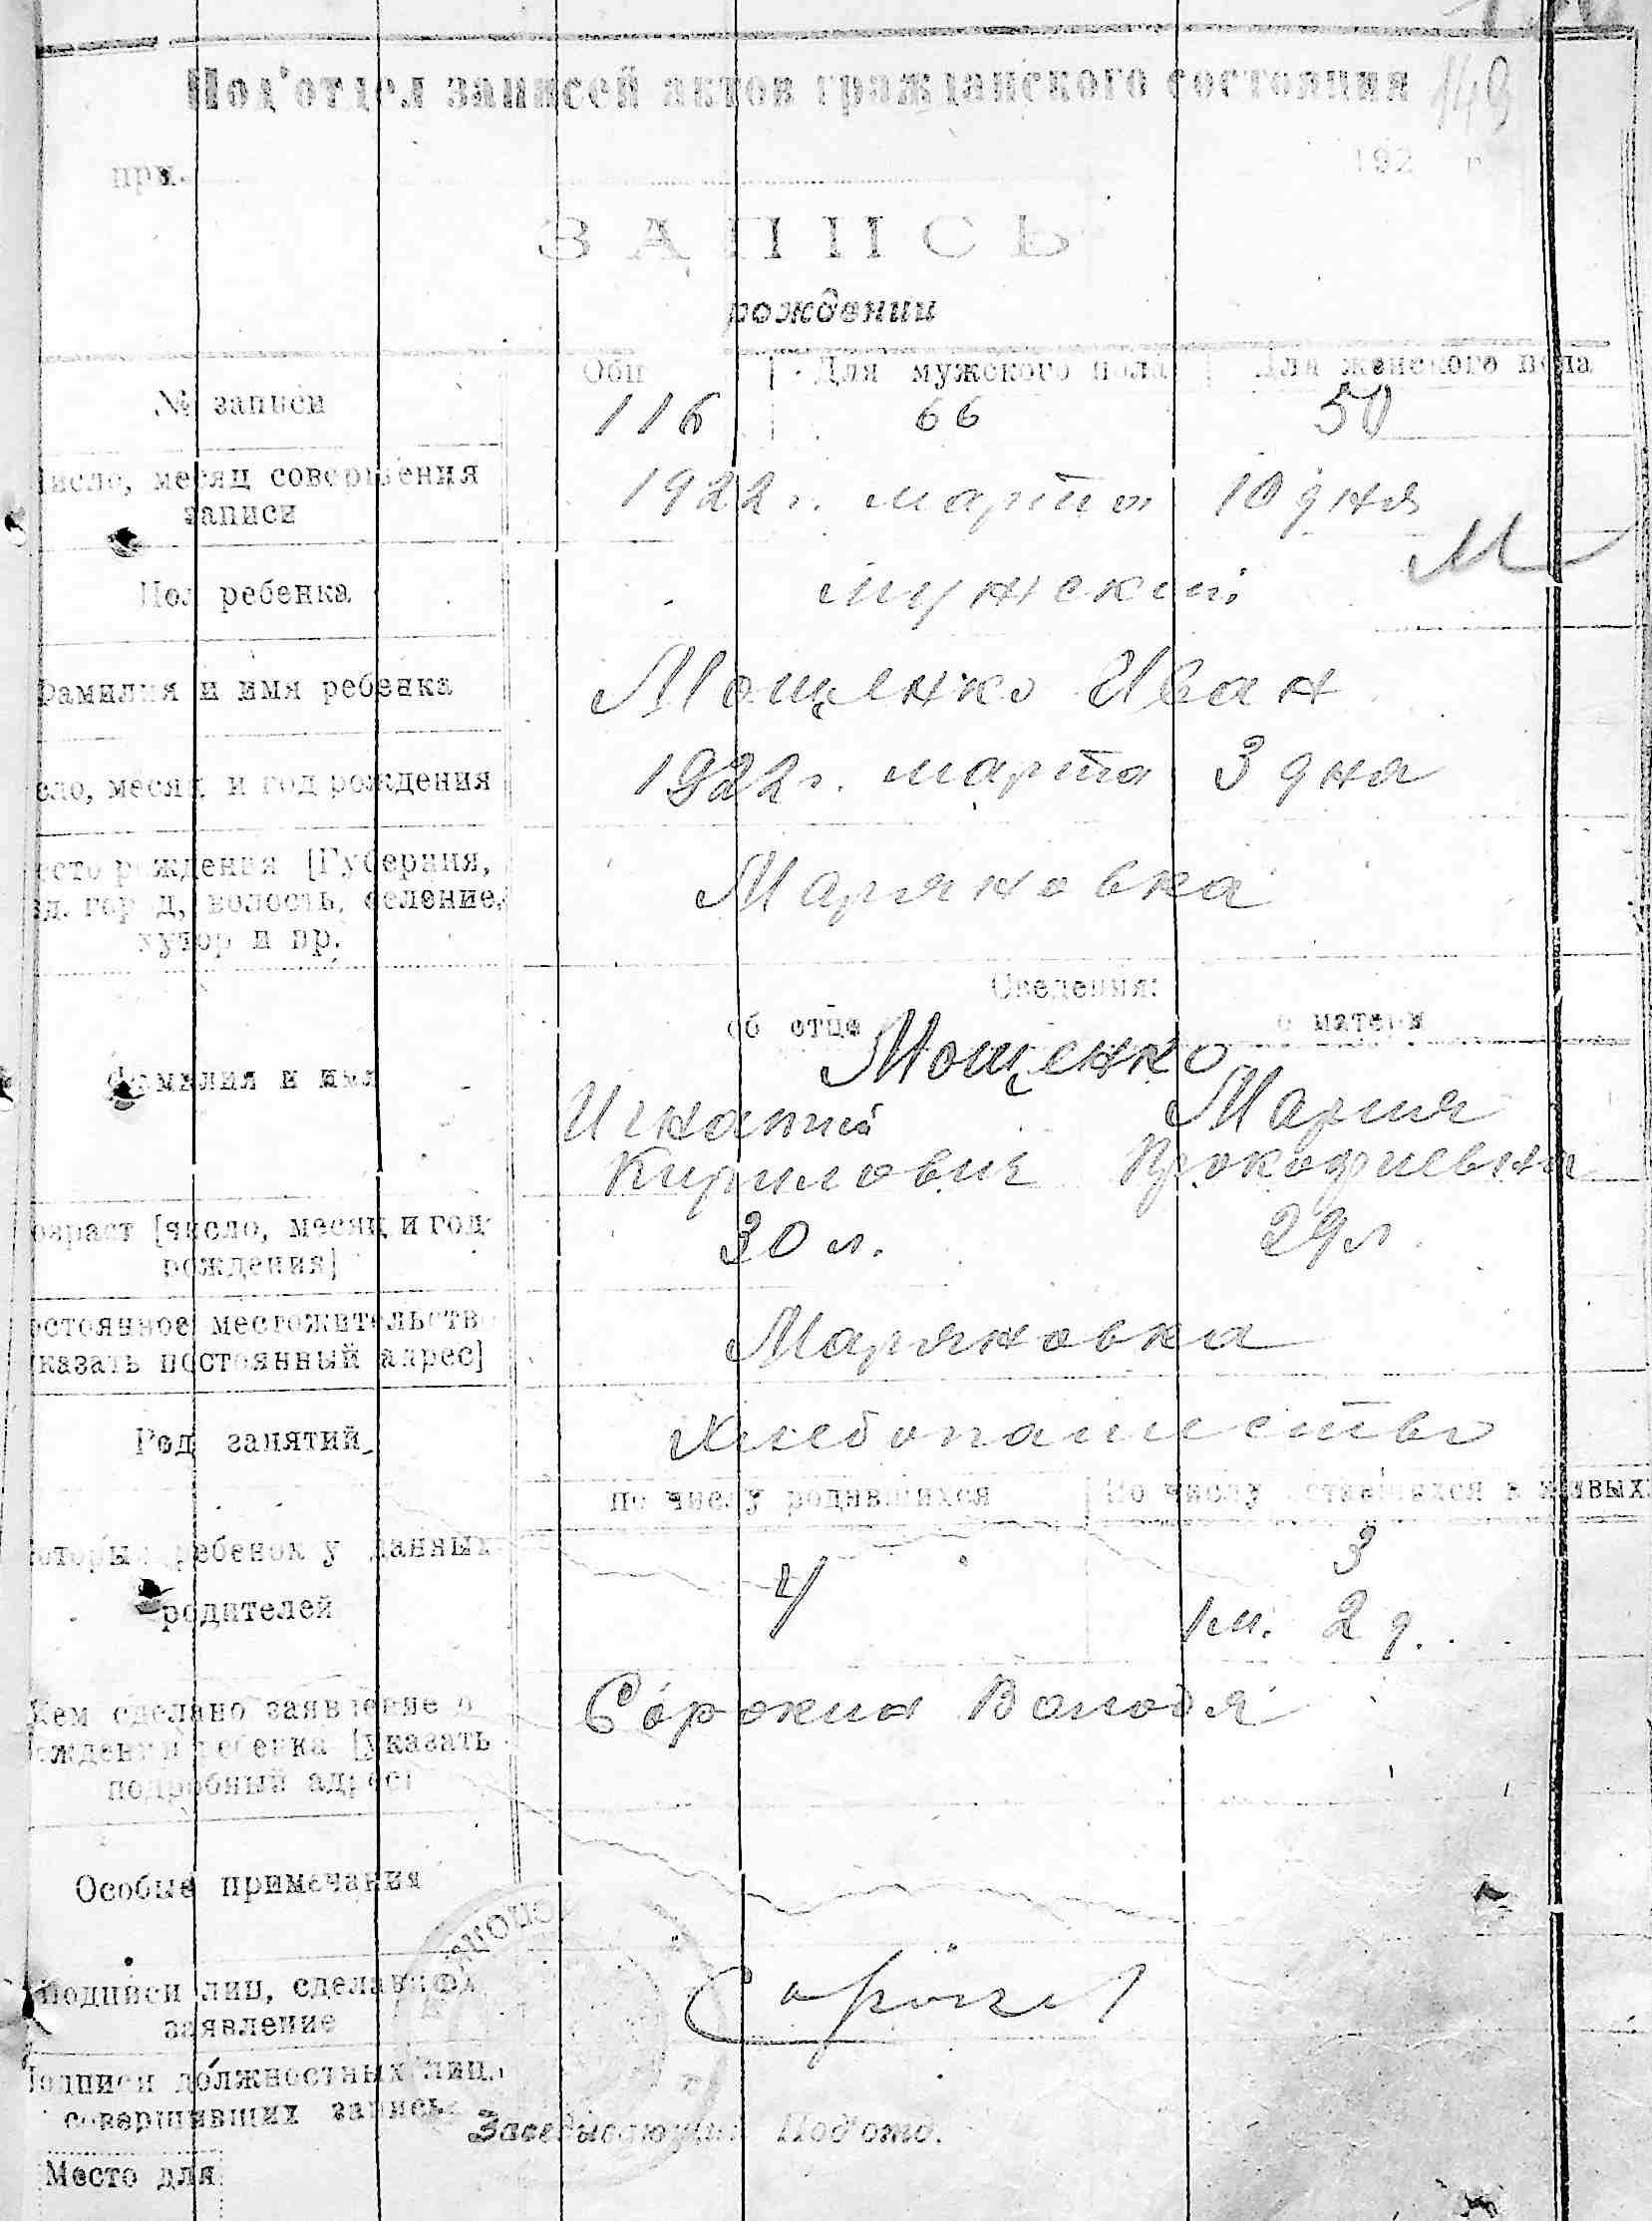 Под'отдел записей актов гражданского состояния 149
при 192 г
ЗАПИСЬ
рождении
Общ Для мужского пола Для женского пола
№ записи 116 66 50
число, месяц совершения 1922 г. марта 10 дня
записи
М
Пол ребенка мужский
Фамилия и имя ребенка Мощенко Иван
сло, месяц и год рождения 1922 г. марта 3 дна
есто рождения [Губерния,
зд. город, волость, селение, Маряновка
хутор и пр.
Сведения:
об отце о матери
Мощенко
Фамилия и имя
Игнатий Мария
Кирилович Прокофиевна
озраст [число, месяц и год 30 л. 29 л.
рождения]
остоянное местожительств Маряновка
казать постоянный адрес]
Род занятий Хлебопашество
по числу родившихся По числу оставшихся в живых
оторый ребенок у данных 4 3
родителей 1 м. 2 д.
Кем сделано заявление о Сорокин Володя
ождении ребенка [указать
подробный адрес
Особые примечания
Подписи лиц, сделавших
заявление
Подписи должностных лиц,
совершивших запись
Заведывающий Под'отд.
Место для